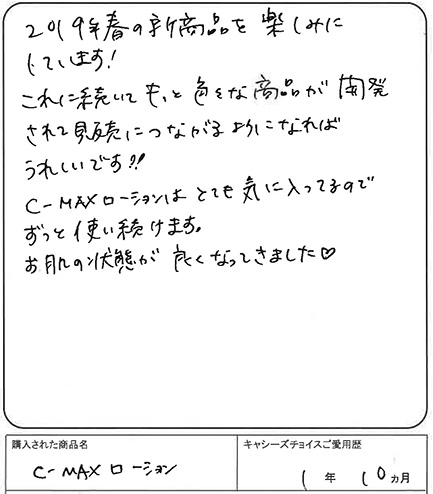 2019年春の新商品を楽しみに
しています!
これに続いてもっと色々な商品が開発
されて販売につながるようになれば
うれしいです!!
C-MAXローションはとても気に入ってるので
ずっと使い続けます。
お肌の状態が良くなってきました♡
購入された商品名
キャシーズチョイスご愛用歴
C-MAXローション
1年10ヵ月